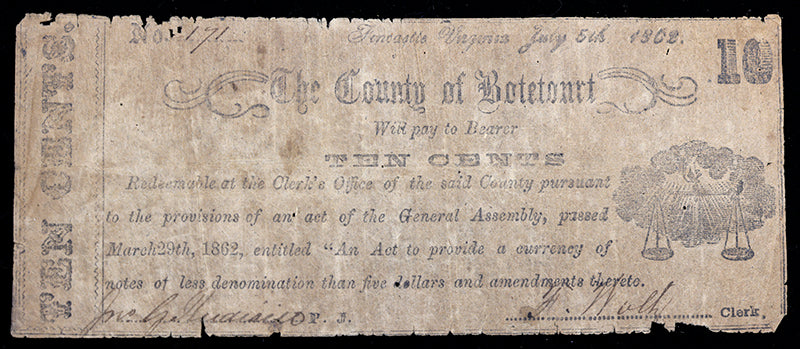 TEN CENTS.
No. 171 Fincastle Virginia July 5th 1862.
10
The County of Botetourt
Will pay to Bearer
TEN CENTS
Redeemable at the Clerk's Office of the said County pursuant
to the provisions of an act of the General Assembly, passed
March 29th, 1862, entitled "An Act to provide a currency of
notes of less denomination than five dollars and amendments thereto.
Jno. G. P. J. F. Woltz Clerk.